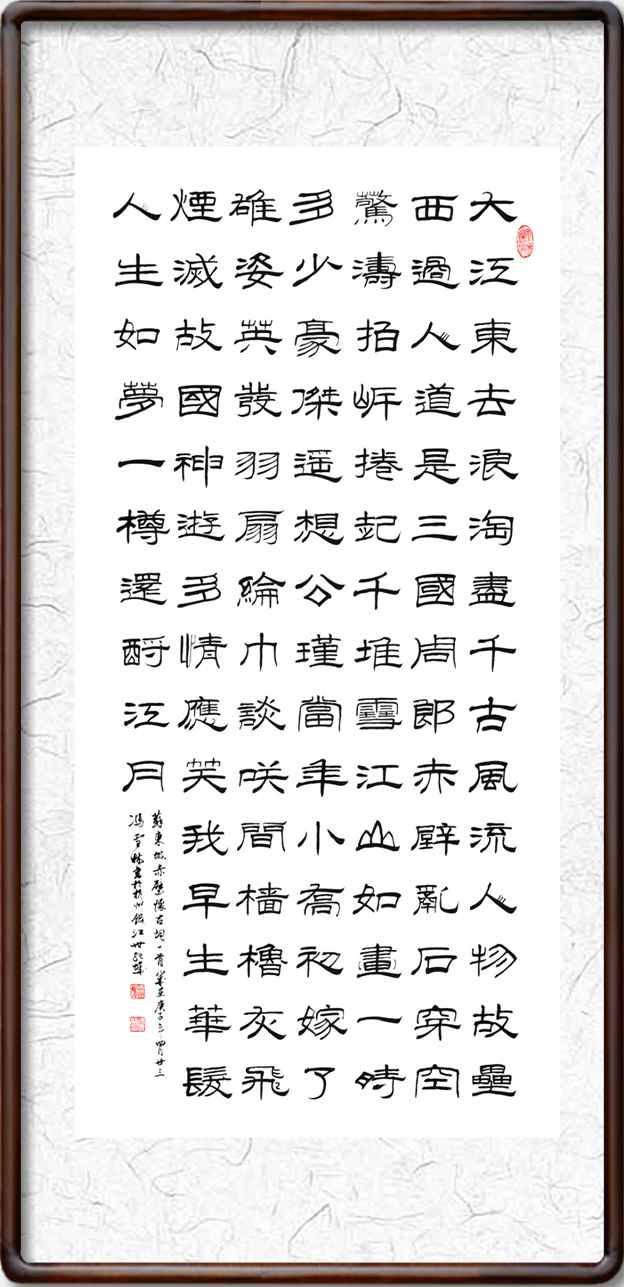 大江東去浪淘盡千古風流人物故壘
西過人道是三國周郎赤壁亂石穿空
驚濤拍岸捲起千堆雪江山如畫一時
多少豪傑遥想公瑾當年小喬初嫁了
雄姿英發羽扇綸巾談咲間檣櫓灰飛
煙滅故國神遊多情應笑我早生華髮
人生如夢一樽還酹江月
蘇東坡赤壁懷古詞一首歲在庚子四月廿三
馮雪林書於杭州錢江世紀城